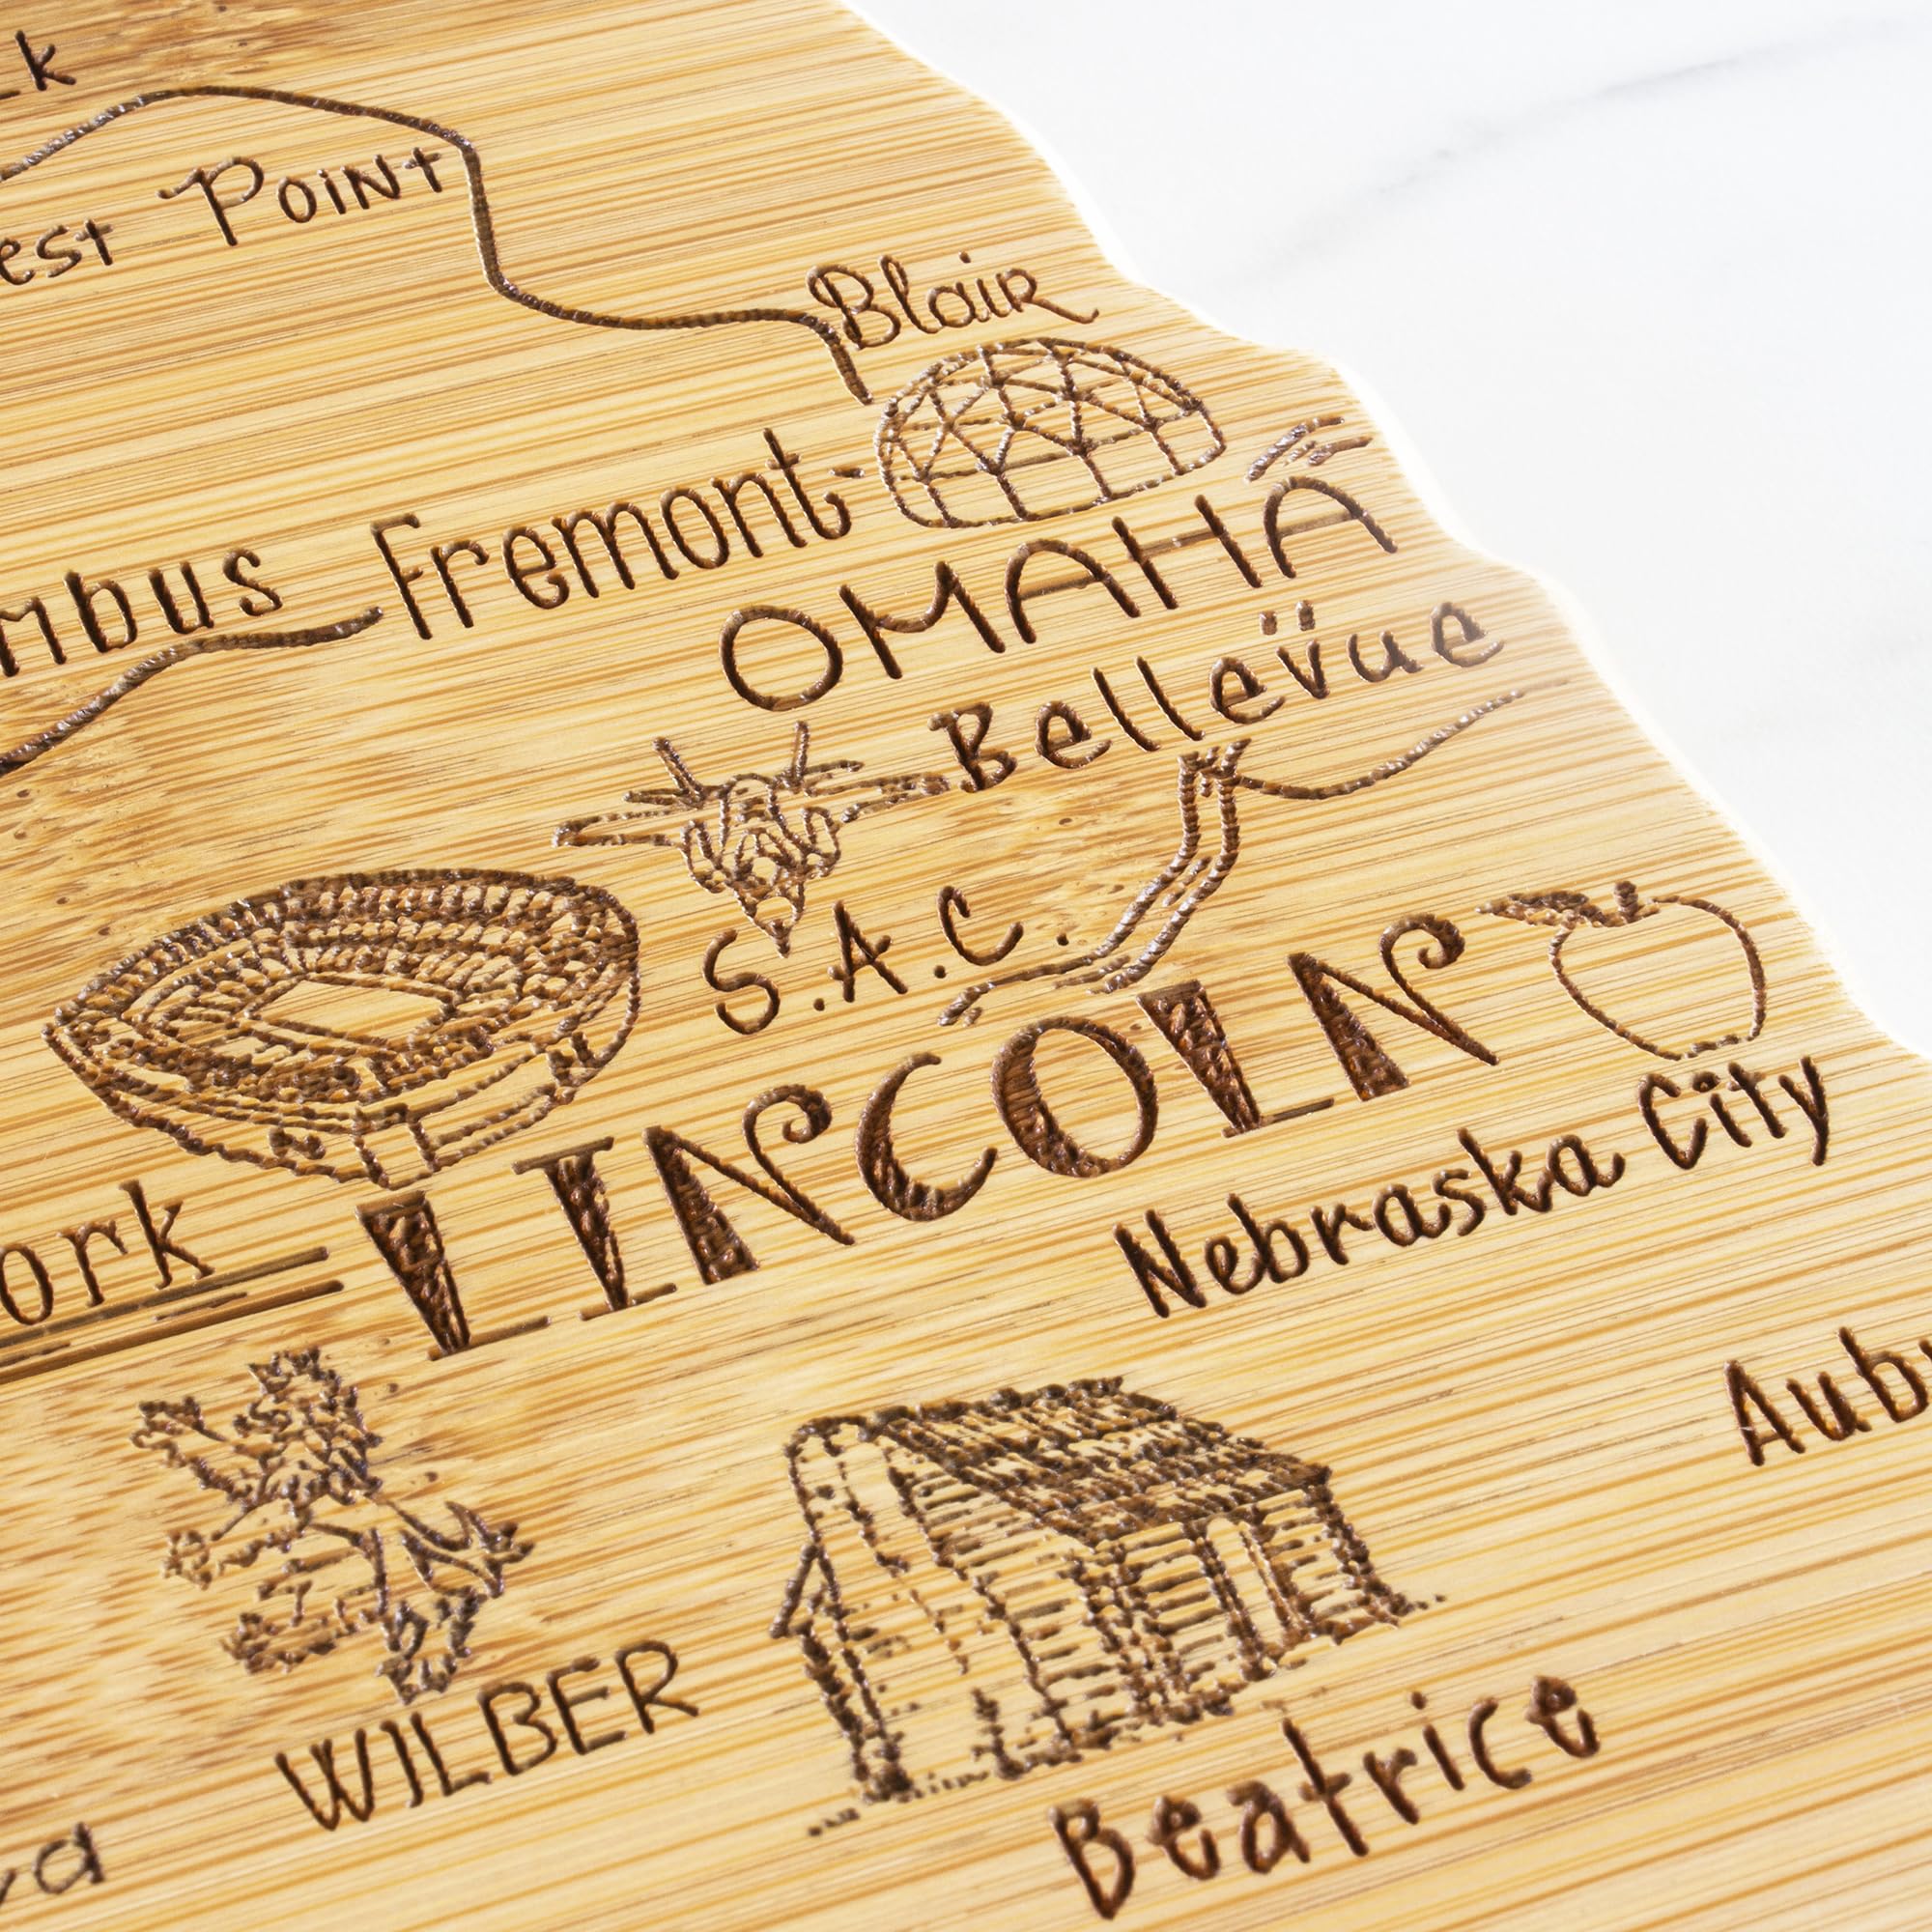 k
est Point
Blair
mbus Fremont
OMAHA
Bellevue
S.A.C.
LINCOLN
Nebraska City
ork
Aub
WILBER
Beatrice